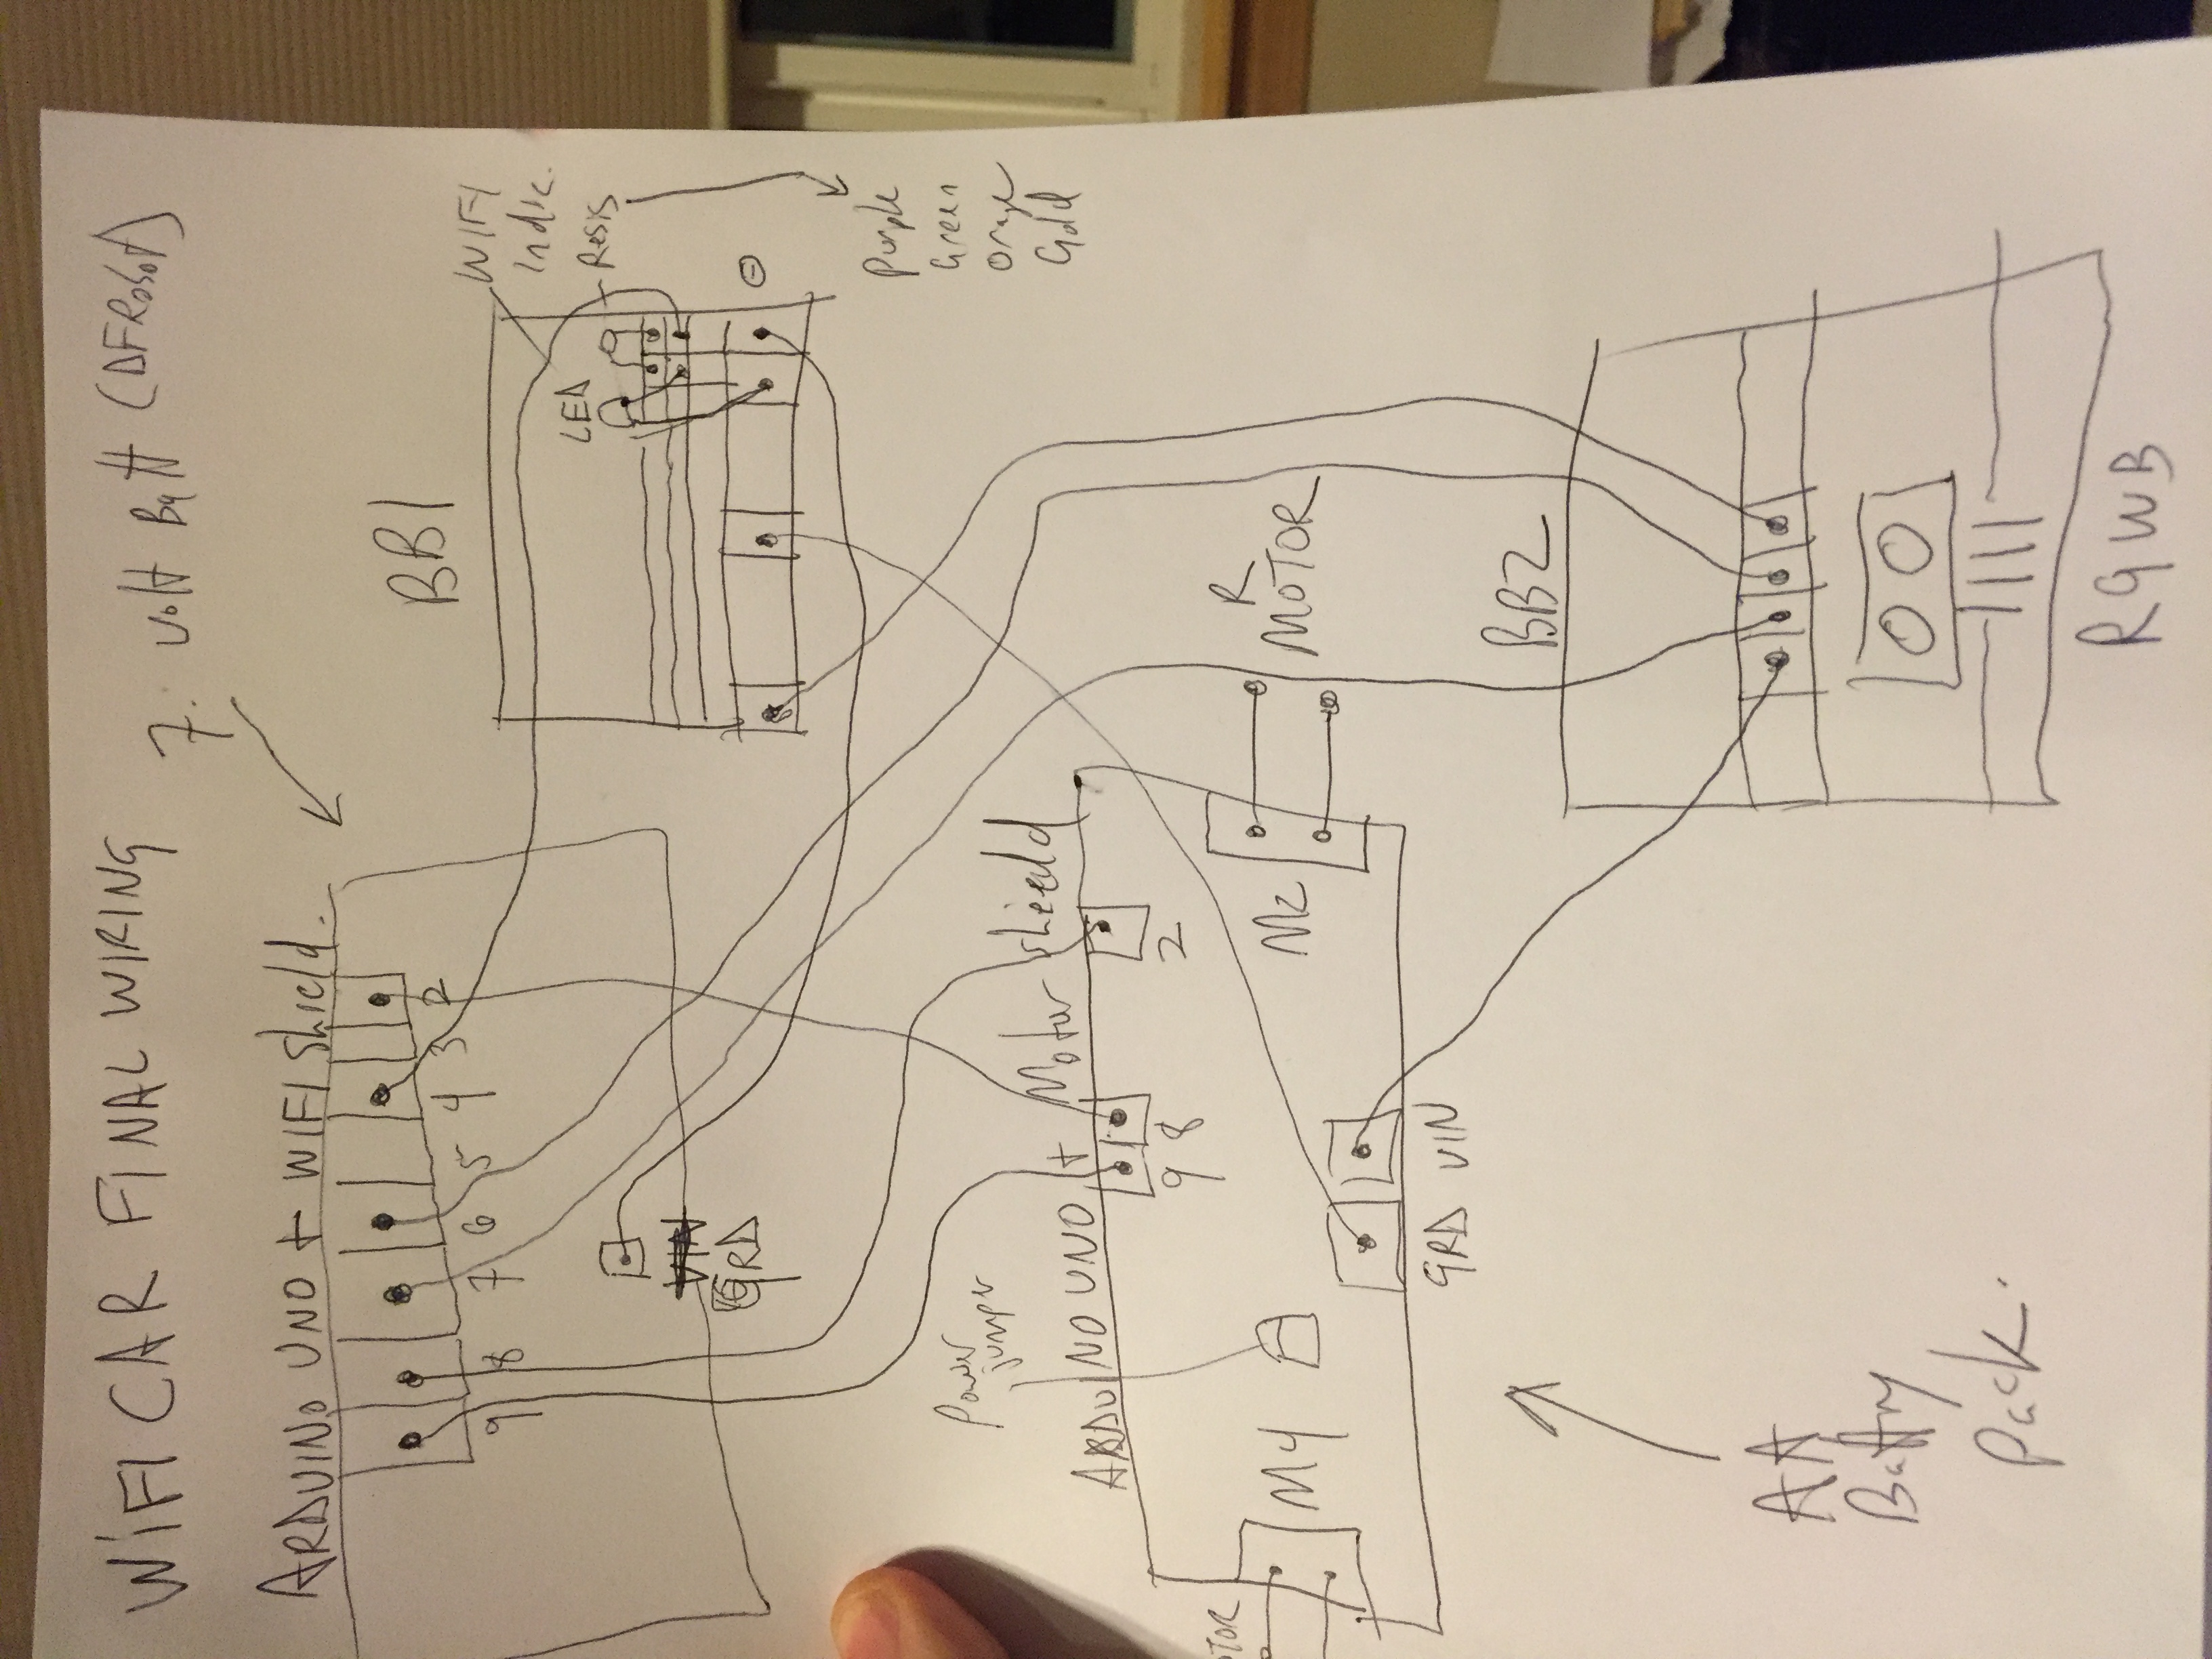 WIFI CAR FINAL WIRING
7. Volt Batt (DFRobot)
ARDUINO UNO + WIFI Shield.
9 8 7 6 5 4 3 2
BB1
WIFI
Indic.
LED
Resis
VIN
GRD
⊖
Purple
Green
Orange
Gold
Power
jumper
ARDUINO UNO + Motor Shield
9 8 2
OTOR
M4
M2
R
MOTOR
GRD VIN
BB2
AA
Battry
Pack.